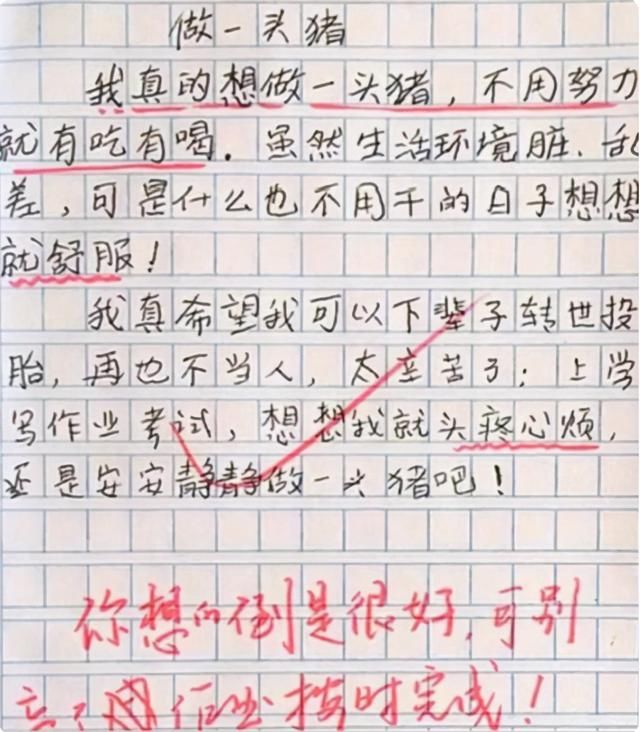 做一头猪
我真的想做一头猪，不用努力
就有吃有喝。虽然生活环境脏、乱
差，可是什么也不用干的日子想想
就舒服！
我真希望我可以下辈子转世投
胎，再也不当人，太辛苦了；上学
写作业考试，想想我就头疼心烦，
还是安安静静做一头猪吧！
你想的倒是很好，可别
忘了 作业按时完成！